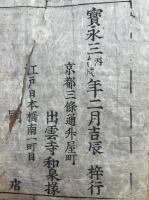 寳永三丙戌年二月吉辰 梓行
京都三條通升屋町
出雲寺和泉掾
江戸日本橋南一町目
同 店